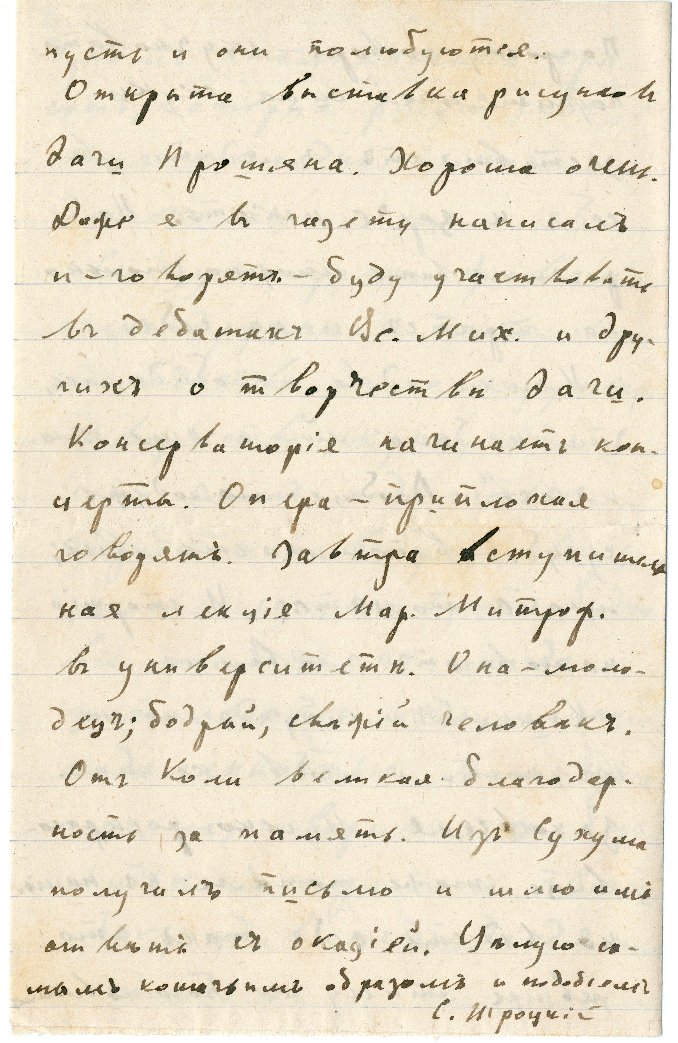 пусть и они полюбуются.
Открыта выставка рисунков
дачи Прошяна. Хороша очень.
Даже я въ газету написалъ
и – говорятъ – буду участвовать
въ дебатахъ Вс. Мих. и дру-
гихъ о творчествѣ дачи.
Консерваторія начинаетъ кон-
церты. Опера – приплохая
говорятъ. Завтра вступитель
ная лекція Мар. Митроф.
въ университетѣ. Она – моло-
децъ; бодрый, свѣжій человѣкъ.
Отъ Коли великая благодар-
ность за память. Изъ Сухума
получилъ письмо и шлю имъ
отвѣтъ съ оказіей. Цѣлую са-
мымъ кошачьимъ образомъ и подобіемъ
С. Троцкій